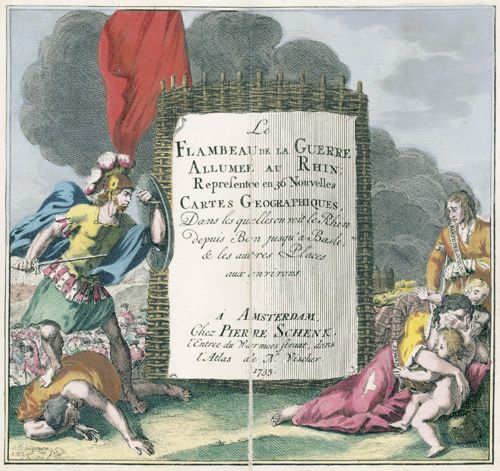 Le
FLAMBEAU DE LA GUERRE
ALLUMEE AU RHIN,
Representee en 36 Nouvelles
CARTES GEOGRAPHIQUES,
Dans les quelles on voit le Rhin
depuis Bon jusqu'à Basle,
& les autres Places
aux environs
à AMSTERDAM,
Chez PIERRE SCHENK,
l'Entree du Warmoes straat, dans
l'Atlas de N. Visscher
1735.